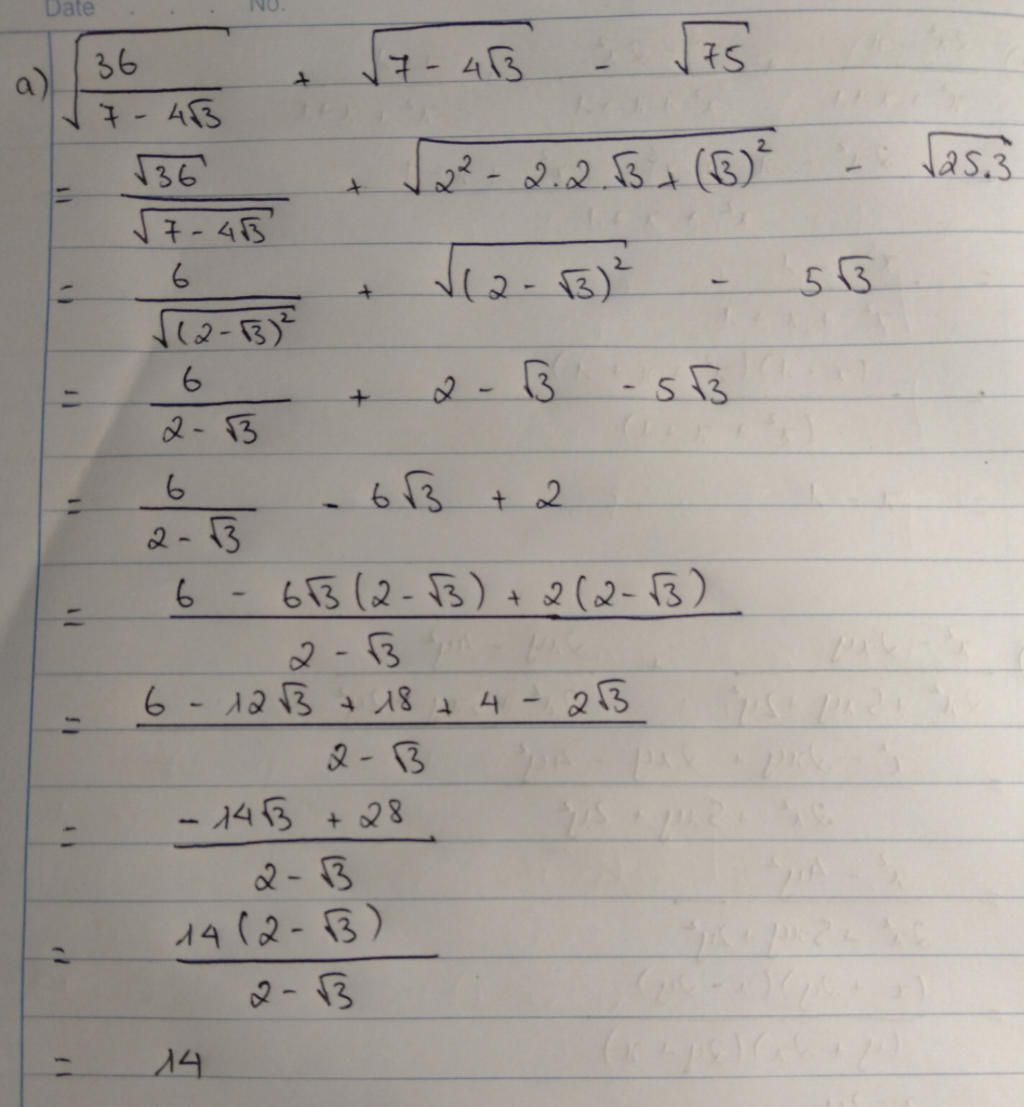 Date . . . No.
a) √(36/(7 - 4√3)) + √(7 - 4√3) - √75
= √36/√(7 - 4√3) + √(2² - 2.2.√3 + (√3)²) - √(25.3)
= 6/√((2 - √3)²) + √((2 - √3)²) - 5√3
= 6/(2 - √3) + 2 - √3 - 5√3
= 6/(2 - √3) - 6√3 + 2
= (6 - 6√3(2 - √3) + 2(2 - √3))/(2 - √3)
= (6 - 12√3 + 18 + 4 - 2√3)/(2 - √3)
= (-14√3 + 28)/(2 - √3)
= 14(2 - √3)/(2 - √3)
= 14